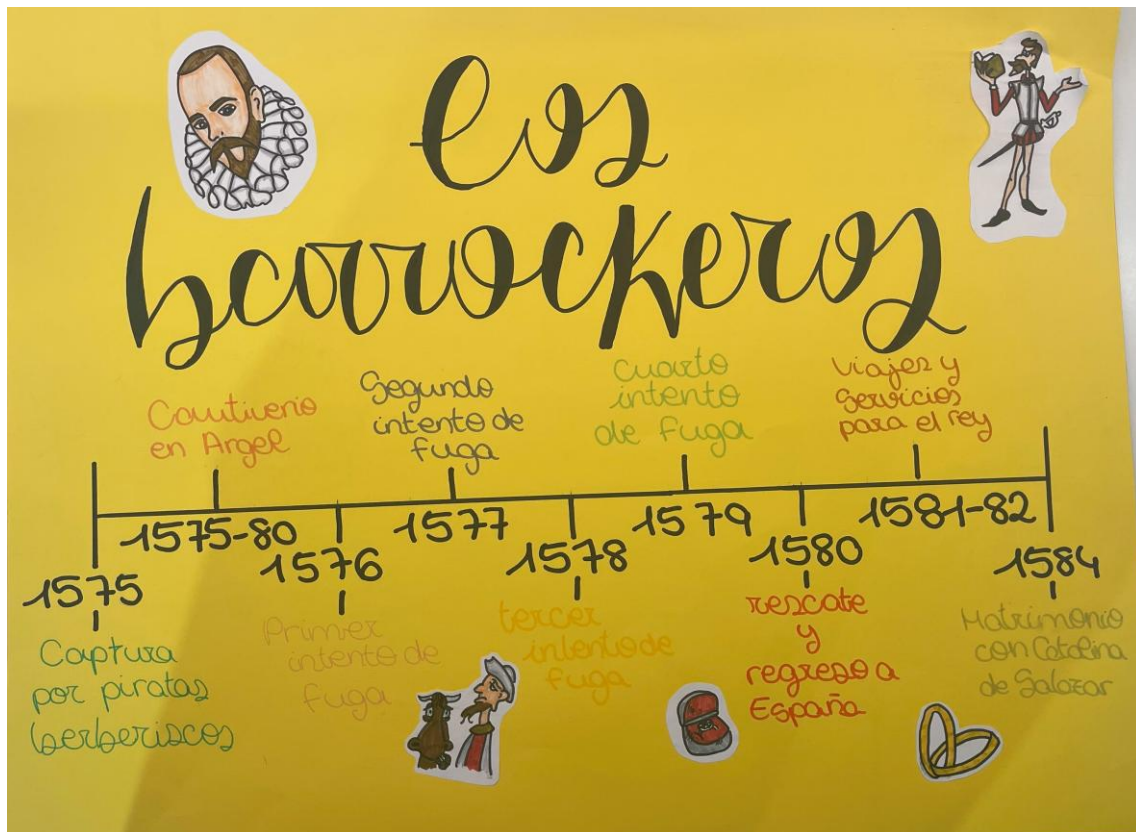 Los
barrockeros
Cautiverio
en Argel
Segundo
intento de
fuga
Cuarto
intento
de fuga
Viajes y
Servicios
para el rey
1575
1575-80
1576
1577
1578
1579
1580
1581-82
1584
Captura
por piratas
berberiscos
Primer
intento de
fuga
tercer
intento de
fuga
rescate
y
regreso a
España
Matrimonio
con Catalina
de Salazar